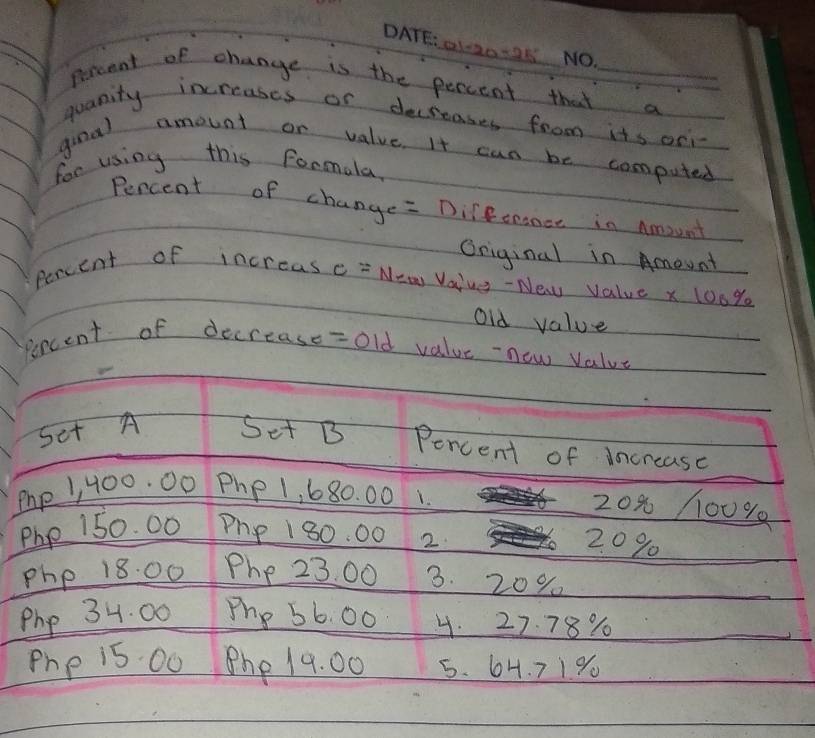 DATE: 01-20-25 NO.
Percent of change is the percent that a
quanity increases or decreases from its ori-
ginal amount or value. It can be computed
for using this Formula,
Percent of change = Difference in Amount
Original in Amount
Percent of increase = New Value - New Value x 100%
Old value
Percent of decrease = Old value - new Value
Set A Set B Percent of Increase
Php 1,400.00 Php 1,680.00 1. 20% /100%
Php 150.00 Php 180.00 2. 20%
Php 18.00 Php 23.00 3. 20%
Php 34.00 Php 56.00 4. 27.78%
Php 15.00 Php 19.00 5. 64.71%